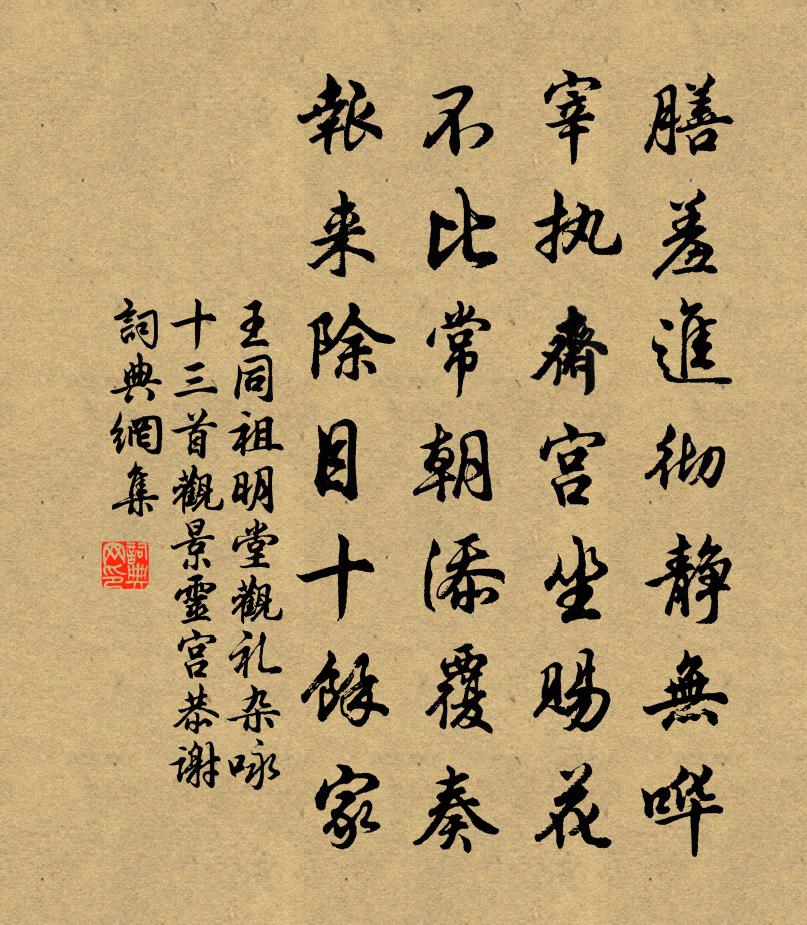 膳羞進彻静無哗
宰执齋宫坐赐花
不比常朝添覆奏
報来除目十餘家
王同祖明堂觀礼杂咏
十三首觀景靈宫恭谢
詞典網集
詞典網印